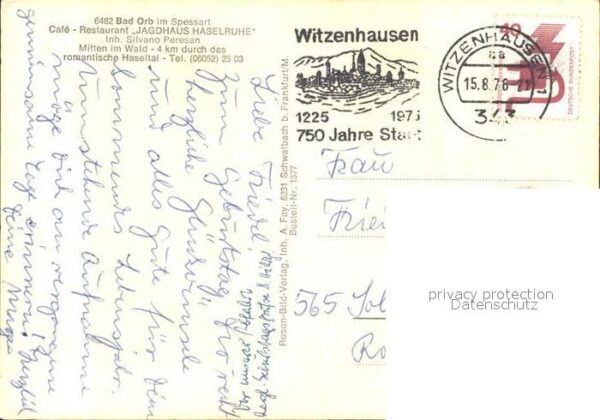 6482 Bad Orb im Spessart
Café - Restaurant "JAGDHAUS HASELRUHE"
Inh. Silvano Peresan
Mitten im Wald - 4 km durch das
romantische Haseltal - Tel. (06052) 25 03
Liebe Friedel!
Zum Geburtstag Dir recht
herzliche Glückwünsche
und alles Gute für Dein
kommendes Lebensjahr.
Umstehende Aufnahme
möge Dich an vergangene
gemeinsame Tage erinnern! Herzlich
Deine
Rosen-Bild-Verlag, Inh. A. Fey, 6231 Schwalbach b. Frankfurt/M.
Bestell-Nr. 1577
Witzenhausen
1225 1975
750 Jahre Stadt
WITZENHAUSEN 1
na
15.8.76-21
343
DEUTSCHE BUNDESPOST
Frau
565 Sol
privacy protection
Datenschutz